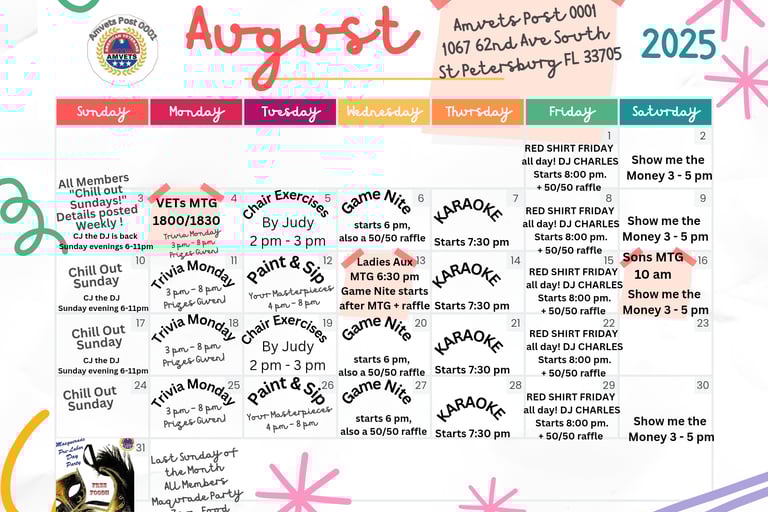 Amvets Post 0001
AMERICAN VETERANS
AMVETS
August
Amvets Post 0001
1067 62nd Ave South
St Petersburg FL 33705
2025
Sunday
Monday
Tuesday
Wednesday
Thursday
Friday
Saturday
1
RED SHIRT FRIDAY
all day! DJ CHARLES
Starts 8:00 pm.
+ 50/50 raffle
2
Show me the
Money 3 - 5 pm
All Members
"Chill out
Sundays!"
Details posted
Weekly !
3
CJ the DJ is back
Sunday evenings 6-11pm
4
VETs MTG
1800/1830
Trivia Monday
3 pm - 8 pm
Prizes Given!
5
Chair Exercises
By Judy
2 pm - 3 pm
6
Game Nite
starts 6 pm,
also a 50/50 raffle
7
KARAOKE
Starts 7:30 pm
8
RED SHIRT FRIDAY
all day! DJ CHARLES
Starts 8:00 pm.
+ 50/50 raffle
9
Show me the
Money 3 - 5 pm
10
Chill Out
Sunday
CJ the DJ
Sunday evenings 6-11pm
11
Trivia Monday
3 pm - 8 pm
Prizes Given!
12
Paint & Sip
Your Masterpieces
4 pm - 8 pm
13
Ladies Aux
MTG 6:30 pm
Game Nite starts
after MTG + raffle
14
KARAOKE
Starts 7:30 pm
15
RED SHIRT FRIDAY
all day! DJ CHARLES
Starts 8:00 pm.
+ 50/50 raffle
16
Sons MTG
10 am
Show me the
Money 3 - 5 pm
17
Chill Out
Sunday
CJ the DJ
Sunday evenings 6-11pm
18
Trivia Monday
3 pm - 8 pm
Prizes Given!
19
Chair Exercises
By Judy
2 pm - 3 pm
20
Game Nite
starts 6 pm,
also a 50/50 raffle
21
KARAOKE
Starts 7:30 pm
22
RED SHIRT FRIDAY
all day! DJ CHARLES
Starts 8:00 pm.
+ 50/50 raffle
23
24
Chill Out
Sunday
25
Trivia Monday
3 pm - 8 pm
Prizes Given!
26
Paint & Sip
Your Masterpieces
4 pm - 8 pm
27
Game Nite
starts 6 pm,
also a 50/50 raffle
28
KARAOKE
Starts 7:30 pm
29
RED SHIRT FRIDAY
all day! DJ CHARLES
Starts 8:00 pm.
+ 50/50 raffle
30
Show me the
Money 3 - 5 pm
31
Masquerade
Pre-Labor
Day
Party
FREE
FOOD!
Last Sunday of
the Month
All Members
Maqurade Party
Food